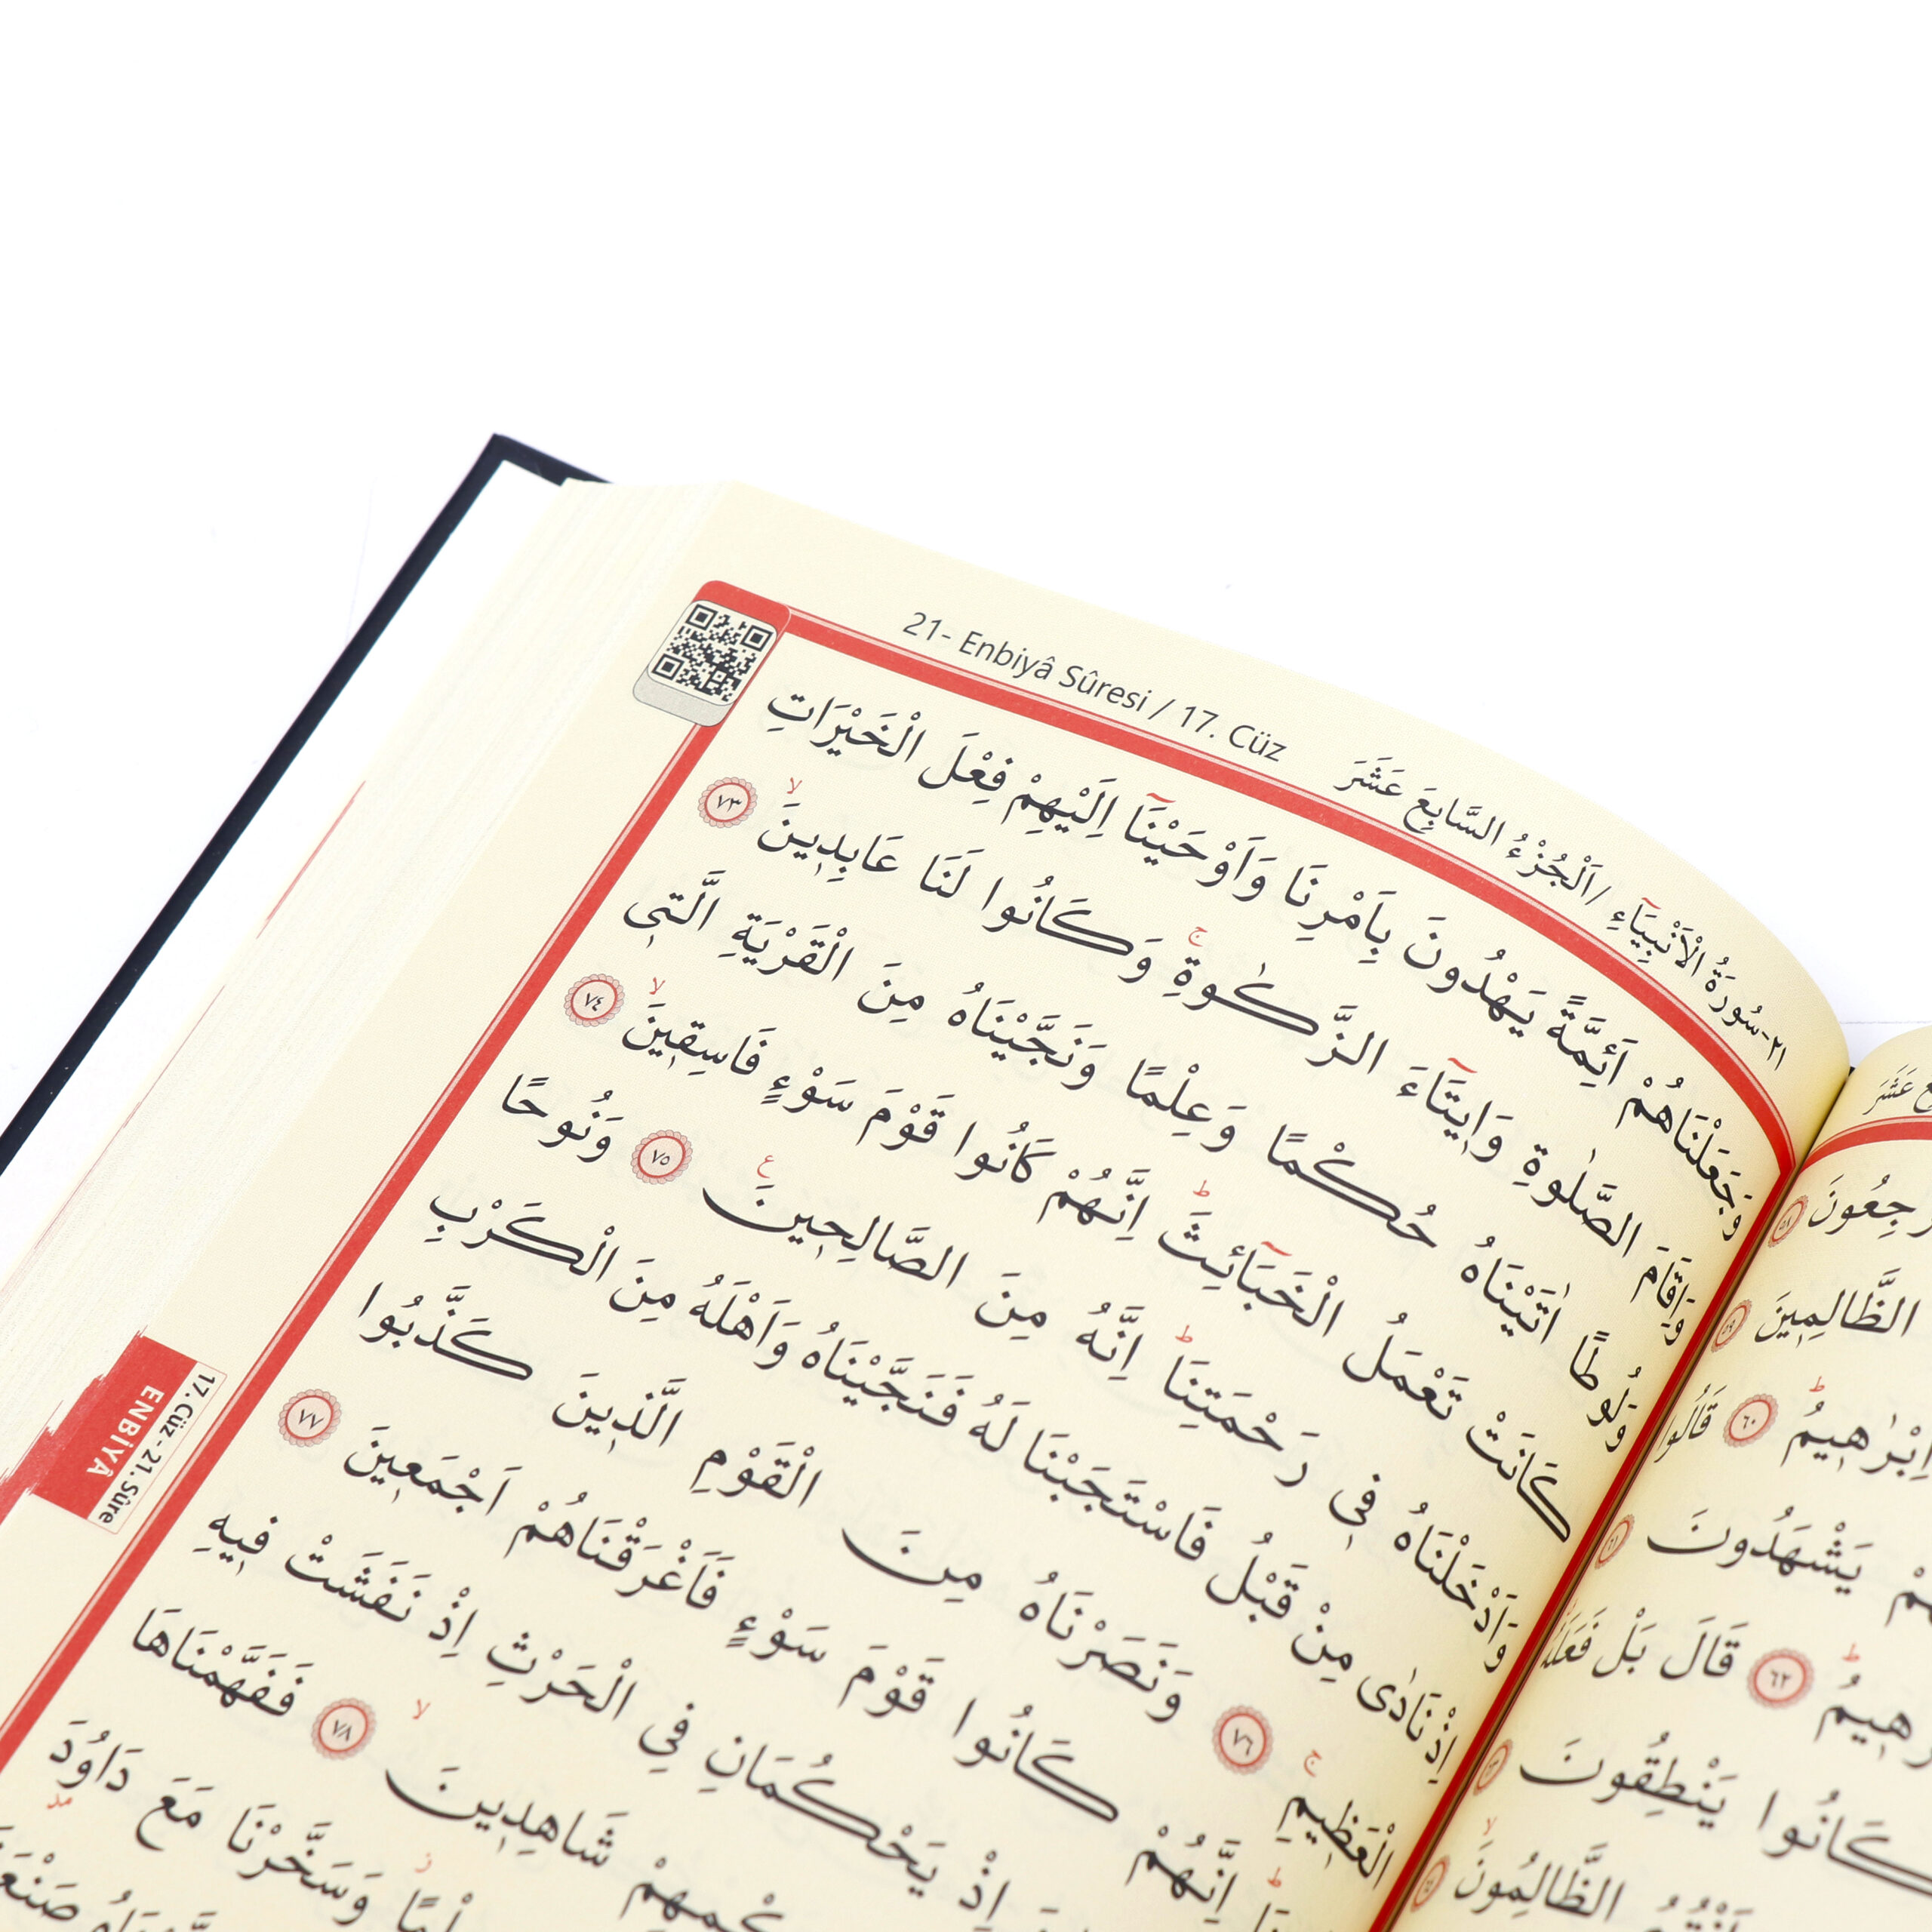 21- Enbiyâ Sûresi / 17. Cüz
٢١-سُورَةُ الْاَنْبِيَٓاءِ /اَلْجُزْءُ السَّابِعَ عَشَرَ
وَجَعَلْنَاهُمْ اَئِمَّةً يَهْدُونَ بِاَمْرِنَا وَاَوْحَيْنَٓا اِلَيْهِمْ فِعْلَ الْخَيْرَاتِ
وَاِقَامَ الصَّلٰوةِ وَا۪يتَٓاءَ الزَّكٰوةِۚ وَكَانُوا لَنَا عَابِد۪ينَۙ ٧٣
وَلُوطًا اٰتَيْنَاهُ حُكْمًا وَعِلْمًا وَنَجَّيْنَاهُ مِنَ الْقَرْيَةِ الَّت۪ى
كَانَتْ تَعْمَلُ الْخَبَٓائِثَۜ اِنَّهُمْ كَانُوا قَوْمَ سَوْءٍ فَاسِق۪ينَۙ ٧٤
وَاَدْخَلْنَاهُ ف۪ى رَحْمَتِنَاۜ اِنَّهُ مِنَ الصَّالِح۪ينَ۟ ٧٥ وَنُوحًا
اِذْ نَادٰى مِنْ قَبْلُ فَاسْتَجَبْنَا لَهُ فَنَجَّيْنَاهُ وَاَهْلَهُ مِنَ الْكَرْبِ
الْعَظ۪يمِۚ ٧٦ وَنَصَرْنَاهُ مِنَ الْقَوْمِ الَّذ۪ينَ كَذَّبُوا
اِنَّهُمْ كَانُوا قَوْمَ سَوْءٍ فَاَغْرَقْنَاهُمْ اَجْمَع۪ينَ ٧٧
اِذْ يَحْكُمَانِ فِي الْحَرْثِ اِذْ نَفَشَتْ ف۪يهِ
شَاهِد۪ينَۙ ٧٨ فَفَهَّمْنَاهَا
وَسَخَّرْنَا مَعَ دَاوُ۫دَ
17. Cüz - 21. Sûre
ENBİYÂ
الظَّالِم۪ينَ
اِبْرٰه۪يمُۜ ٦٠ قَالُوا
يَشْهَدُونَ
٦٢ قَالَ بَلْ فَعَلَهُ
كَانُوا يَنْطِقُونَ
الظَّالِمُونَۙ